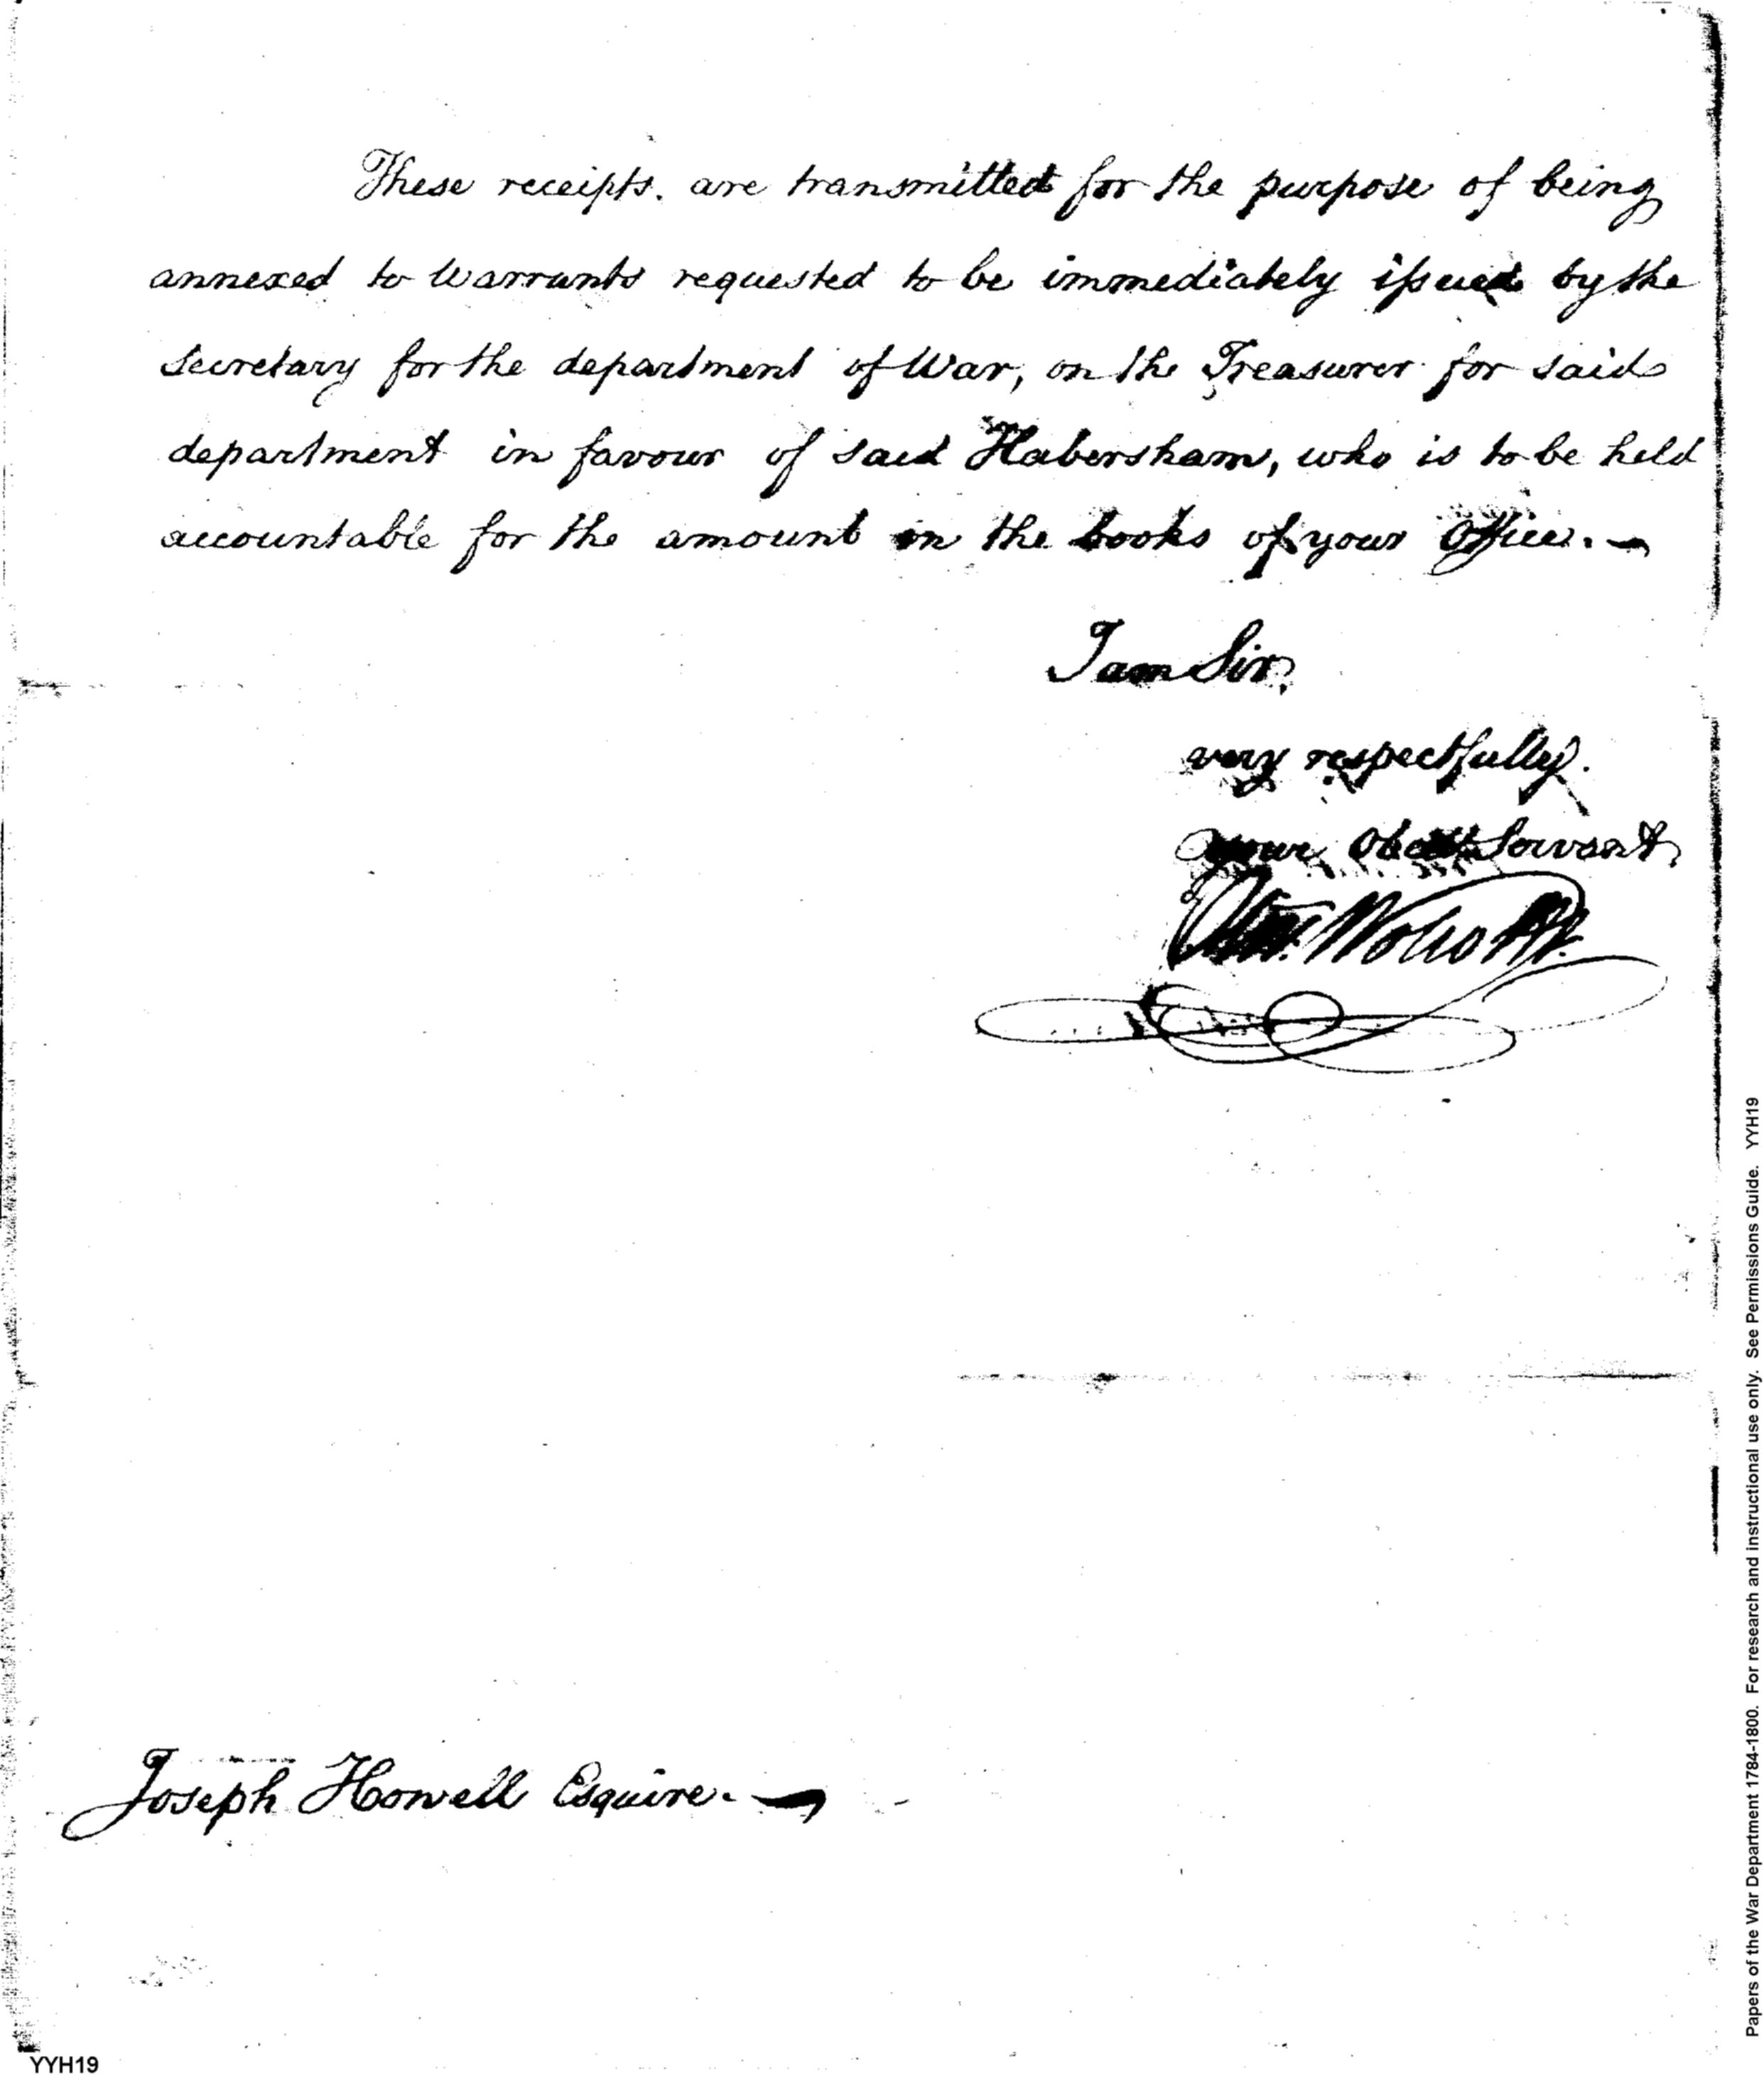 These receipts. are transmitted for the purpose of being
annexed to Warrants requested to be immediately issued by the
Secretary for the department of War, on the Treasurer for said
department in favour of said Habersham, who is to be held
accountable for the amount in the books of your Office.
I am Sir,
very respectfully.
your Obed Servant,
Oliv. Wolcott
Joseph Howell Esquire.
YYH19
Papers of the War Department 1784-1800. For research and instructional use only. See Permissions Guide. YYH19